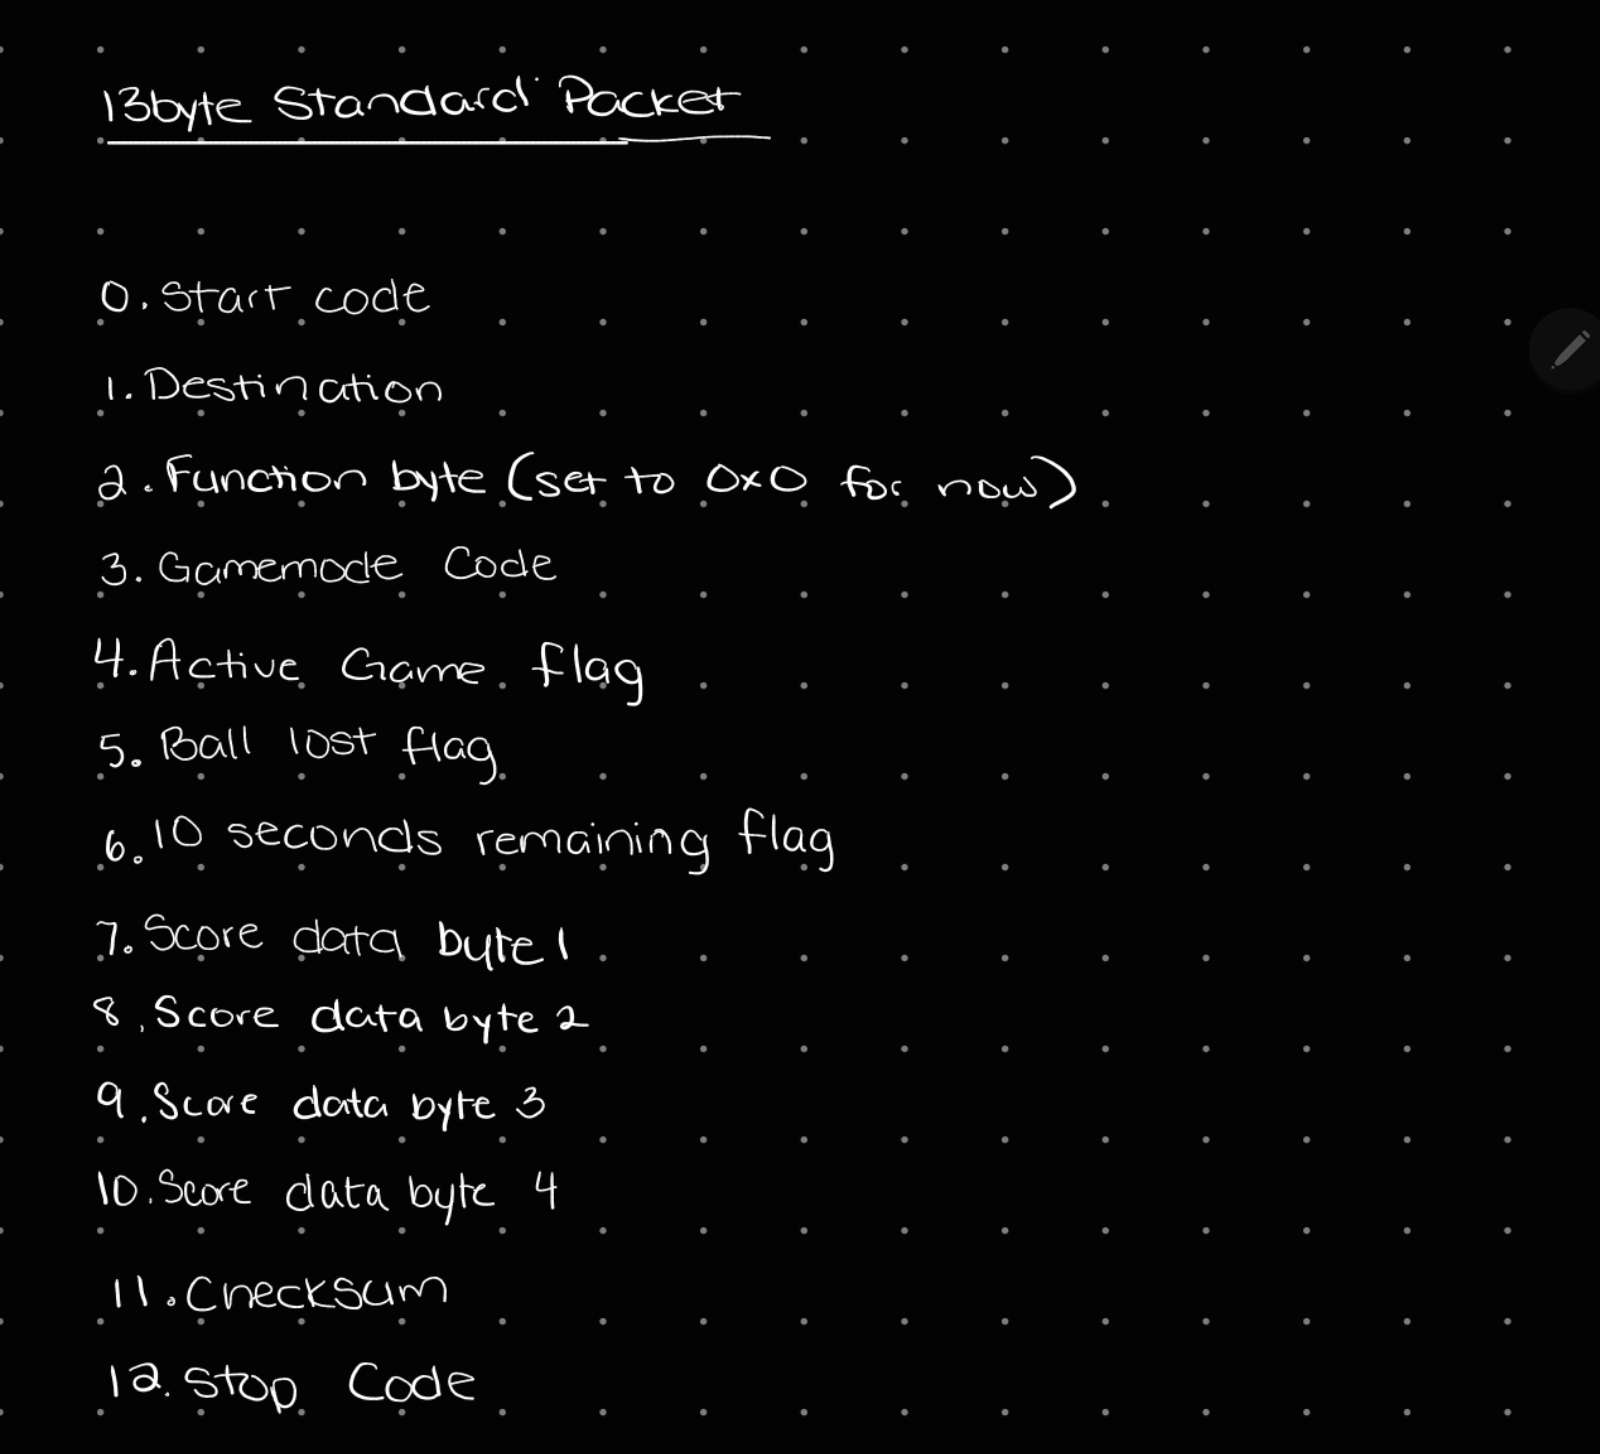 13byte Standard Packet
0. Start code
1. Destination
2. Function byte (set to 0x0 for now)
3. Gamemode Code
4. Active Game flag
5. Ball lost flag
6. 10 seconds remaining flag
7. Score data byte 1
8. Score data byte 2
9. Score data byte 3
10. Score data byte 4
11. Checksum
12. Stop Code